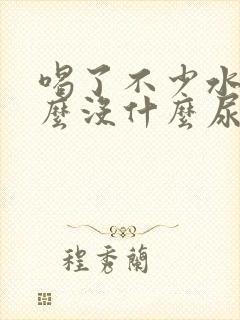 喝了不少水
麼沒什麼尿
程秀蘭